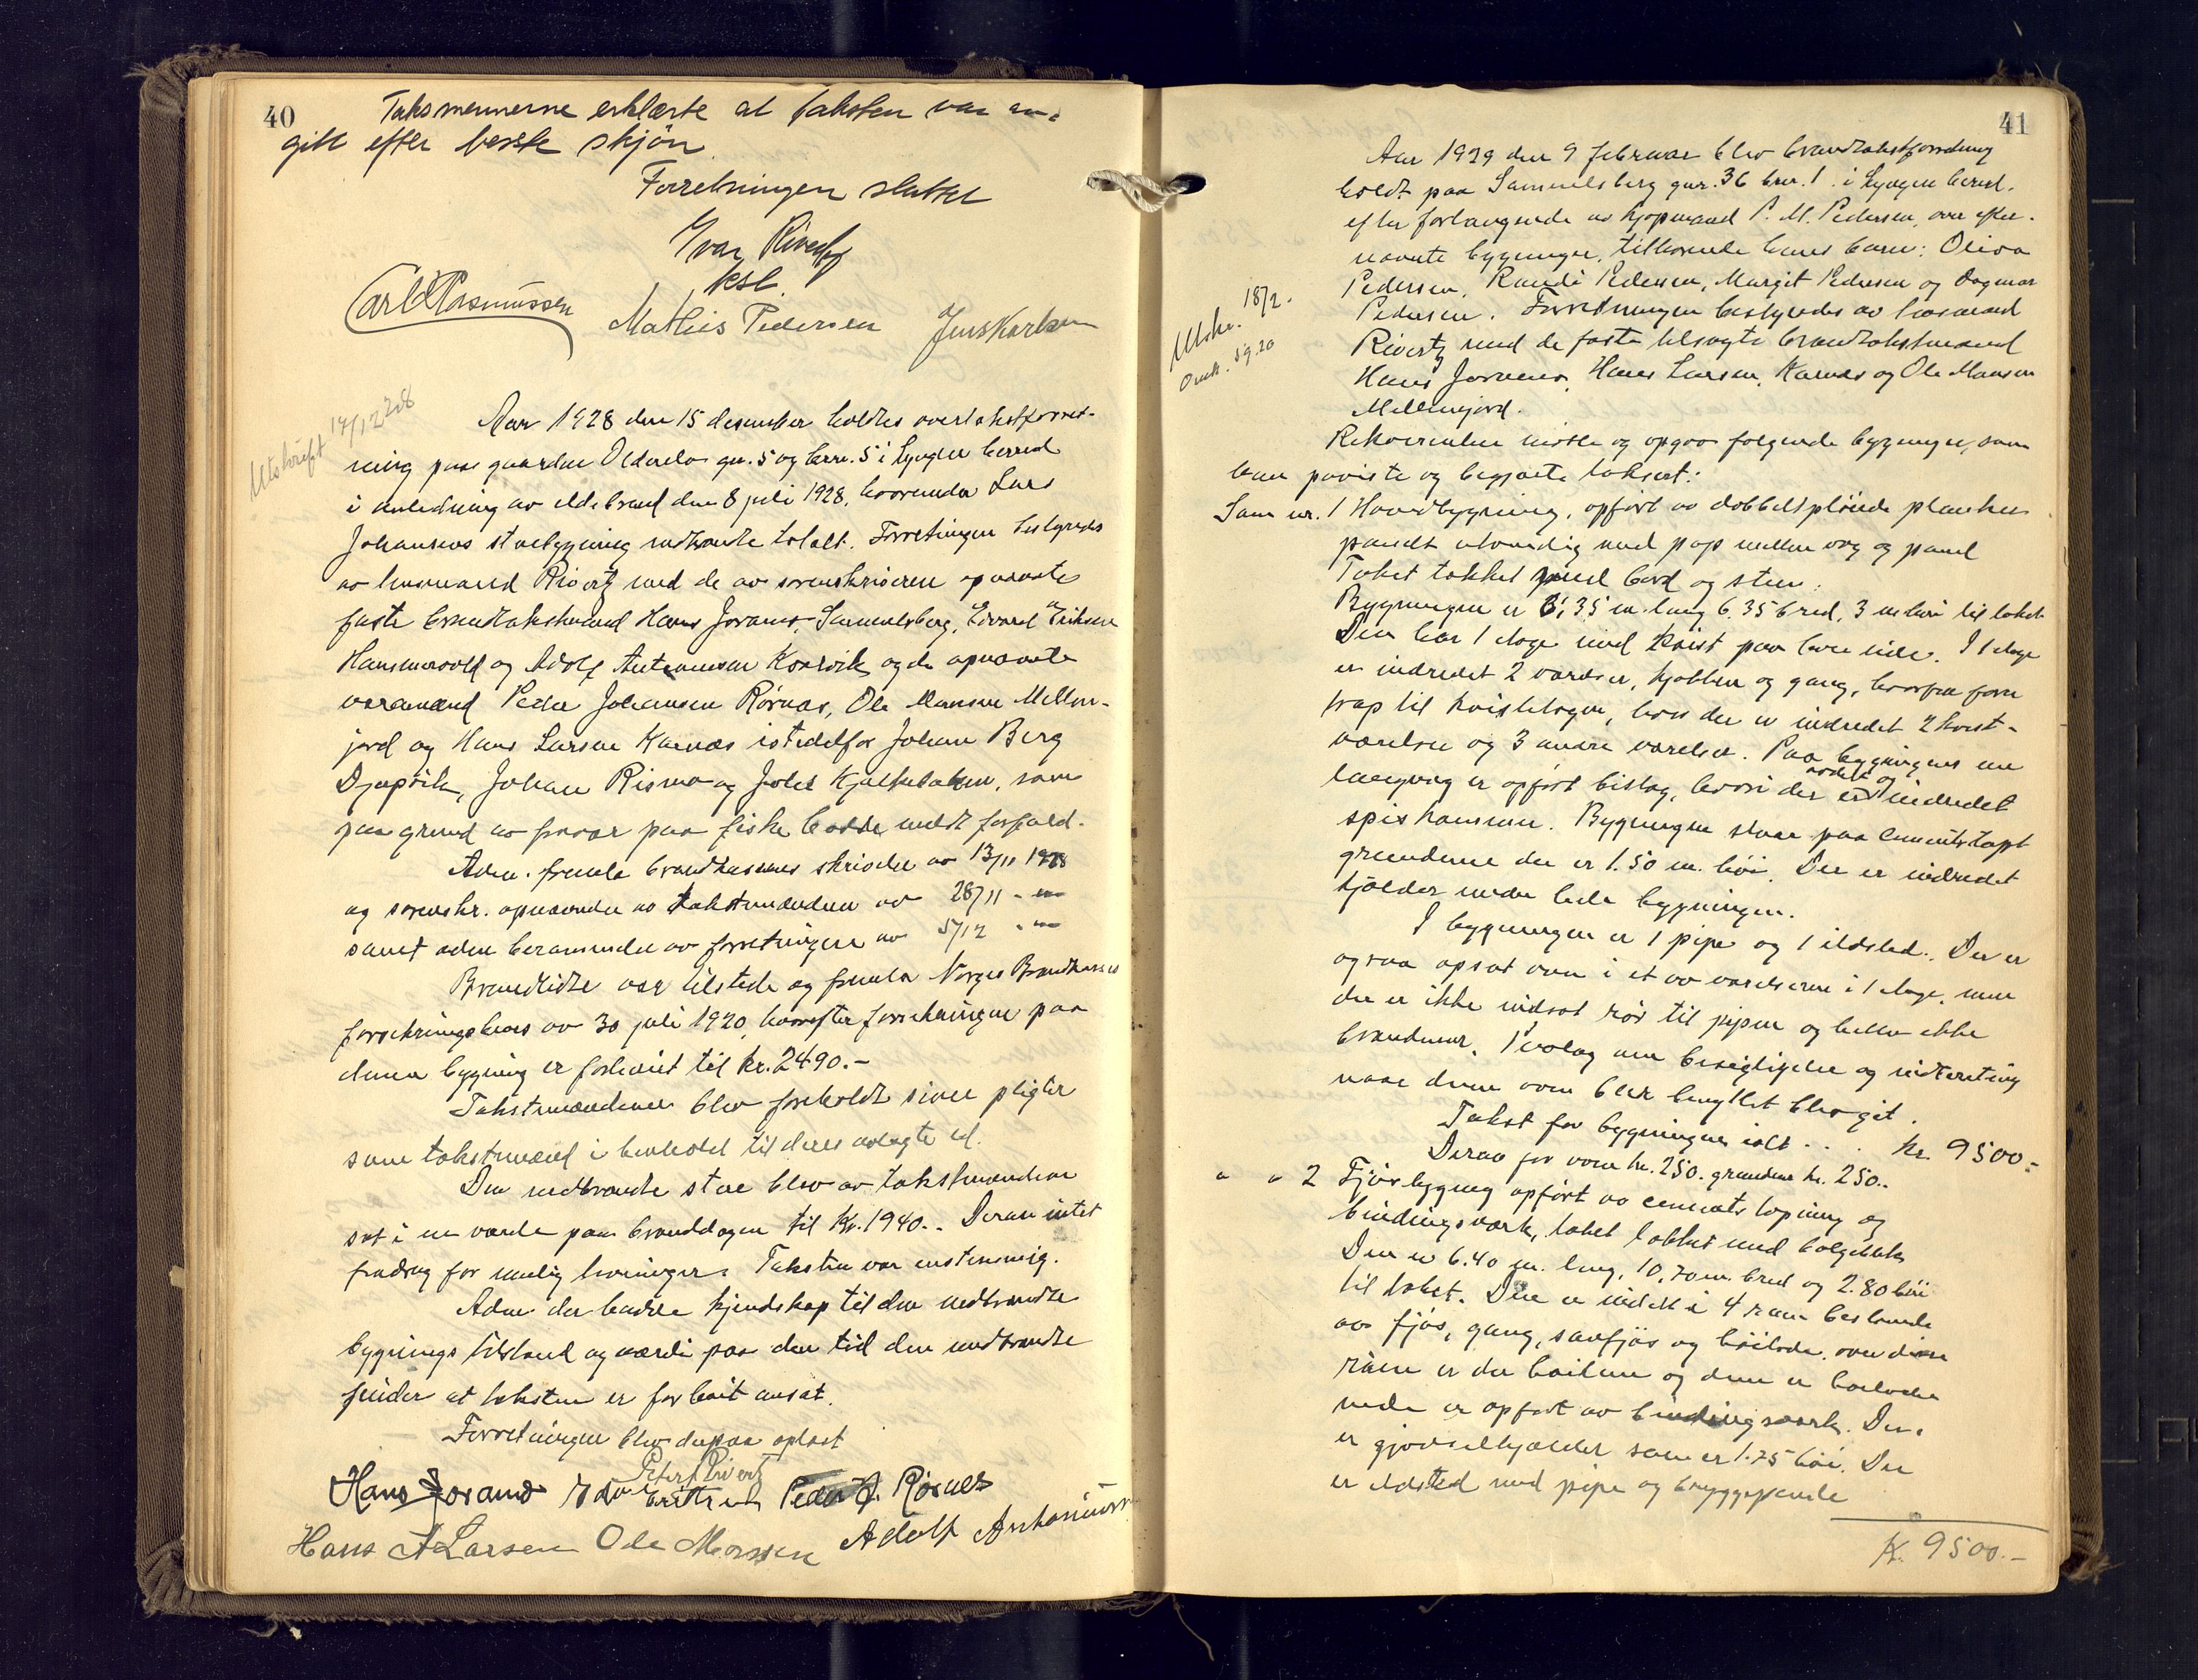 40
Taksmennerne erklærte at taksten var an-
gitt efter beste skjøn
Forretningen sluttet
Ivar Rivertz
ksl.
Carl Rasmussen Mathis Pedersen Jens Karlsen
Utskrift 17/12 28
Aar 1928 den 15 desember holdtes overtakstforret-
ning paa gaarden Olderelv gnr. 5 og brn. 5 i Lyngen herred
i anledning av ildebrand den 8 juli 1928, hvorunder Lars
Johansens stuebygning nedbrændte totalt. Forretningen bestyredes
av lensmand Rivertz med de av sorenskriveren opnævnte
faste brandtakstmænd Hans Joramo, Samuelsberg, Edvard Eriksen
Hansmervold og Adolf Antoniussen Kaarvik og de opnævnte
varamænd Peder Johansen Rørnes, Ole Monsen Mellem-
jord og Hans Larsen Karnæs istedetfor Johan Berg
Djupvik, Johan Rismo og Johs Kjelkebakken, som
paa grund av fravær paa fiske hadde meldt forfald.
Adm. fremla brandkassens skrivelse av 13/11 1928
og sorenskr. opnævnelse av takstmændene av 28/11 - "
samt adm. berammelse av forretningen av 5/12 - "
Brandlidte var tilstede og fremla Norges Brandkasses
forsikringsbevis av 30 juli 1920, hvorefter forsikringen paa
denne bygning er forhøiet til kr. 2490.-
Takstmændene blev foreholdt sine pligter
som takstmænd i henhold til deres avlagte ed.
Den nedbrændte stue blev av takstmændene
sat i en værdi paa branddagen til Kr. 1940.- Derav intet
fradrag for mulig levninger. Taksten var enstemmig.
Adm. der hadde kjendskap til den nedbrændte
bygnings tilstand og værdi paa den tid den nedbrændte
finder at taksten er for høit ansat.
Forretningen blev derpaa opløst
Peter Rivertz
Hans Joramo Edvard Eriksen Peder J. Rörnes
Hans A Larsen Ole Monsen Adolf Antoniussen
41
Utskr. 18/2.
Omk. 59.20
Aar 1929 den 9 februar blev brandtakstforretning
holdt paa Samuelsberg gnr. 36 brn. 1. i Lyngen herred.
efter forlangende av kjøpmand P. M. Pedersen, over efter-
nævnte bygninger, tilhørende hans barn: Oliva
Pedersen, Randi Pedersen, Margit Pedersen og Dagmar
Pedersen. Forretningen bestyredes av lensmand
Rivertz med de faste tilsagte brandtakstmænd
Hans Joramo, Hans Larsen, Karnæs og Ole Monsen
Mellemjord.
Rekvirenten møtte og opgav følgende bygninger, som
han paaviste og begjærte taksert:
Som nr. 1 Hovedbygning, opført av dobbeltpløiede planker
panelt utvendig med pap mellem væg og panel
Taket tækket med bord og sten.
Bygningen er 8,35 m. lang 6.35 bred, 3 m. høi til taket
Den har 1 etage med kvist paa hver side. I 1 etage
er indredet 2 værelser, kjøkken og gang, hvorfra fører
trap til kvistetagen, hvor der er indredet 2 kvist-
værelser og 3 andre værelser. Paa bygningens ene
langvæg er opført bislag, hvori der er indredet
spiskammer. Bygningen staar paa cementstøpt
grundmur der er 1.50 m. høi. Der er indredet
kjælder under hele bygningen.
I bygningen er 1 pipe og 1 ildsted. Der er
ogsaa opsat ovn i et av værelserne i 1 etage, men
der er ikke indsat rør til pipen og heller ikke
brandmur. Paalæg om besigtigelse og indberetning
naar denne ovn blir benyttet blev git.
Takst for bygningen ialt . . . kr. 9500.-
Derav for ovn kr. 250. grundmur kr. 250.-
" " 2 Fjøsbygning opført av cementstøpning og
bindingsverk, taket tækket med bølgeblik
Den er 6.40 m. lang, 10,70 m. bred og 2.80 høi
til taket. Den er inddelt i 4 rum bestaaende
av fjøs, gang, sauefjøs og høilade. over disse
rum er der høilem og denne er
nede er opført av bindingsverk. Der
er gjødselkjælder som er 1.75 høi. Der
er ildsted med pipe og bryggepande
K. 9500.-